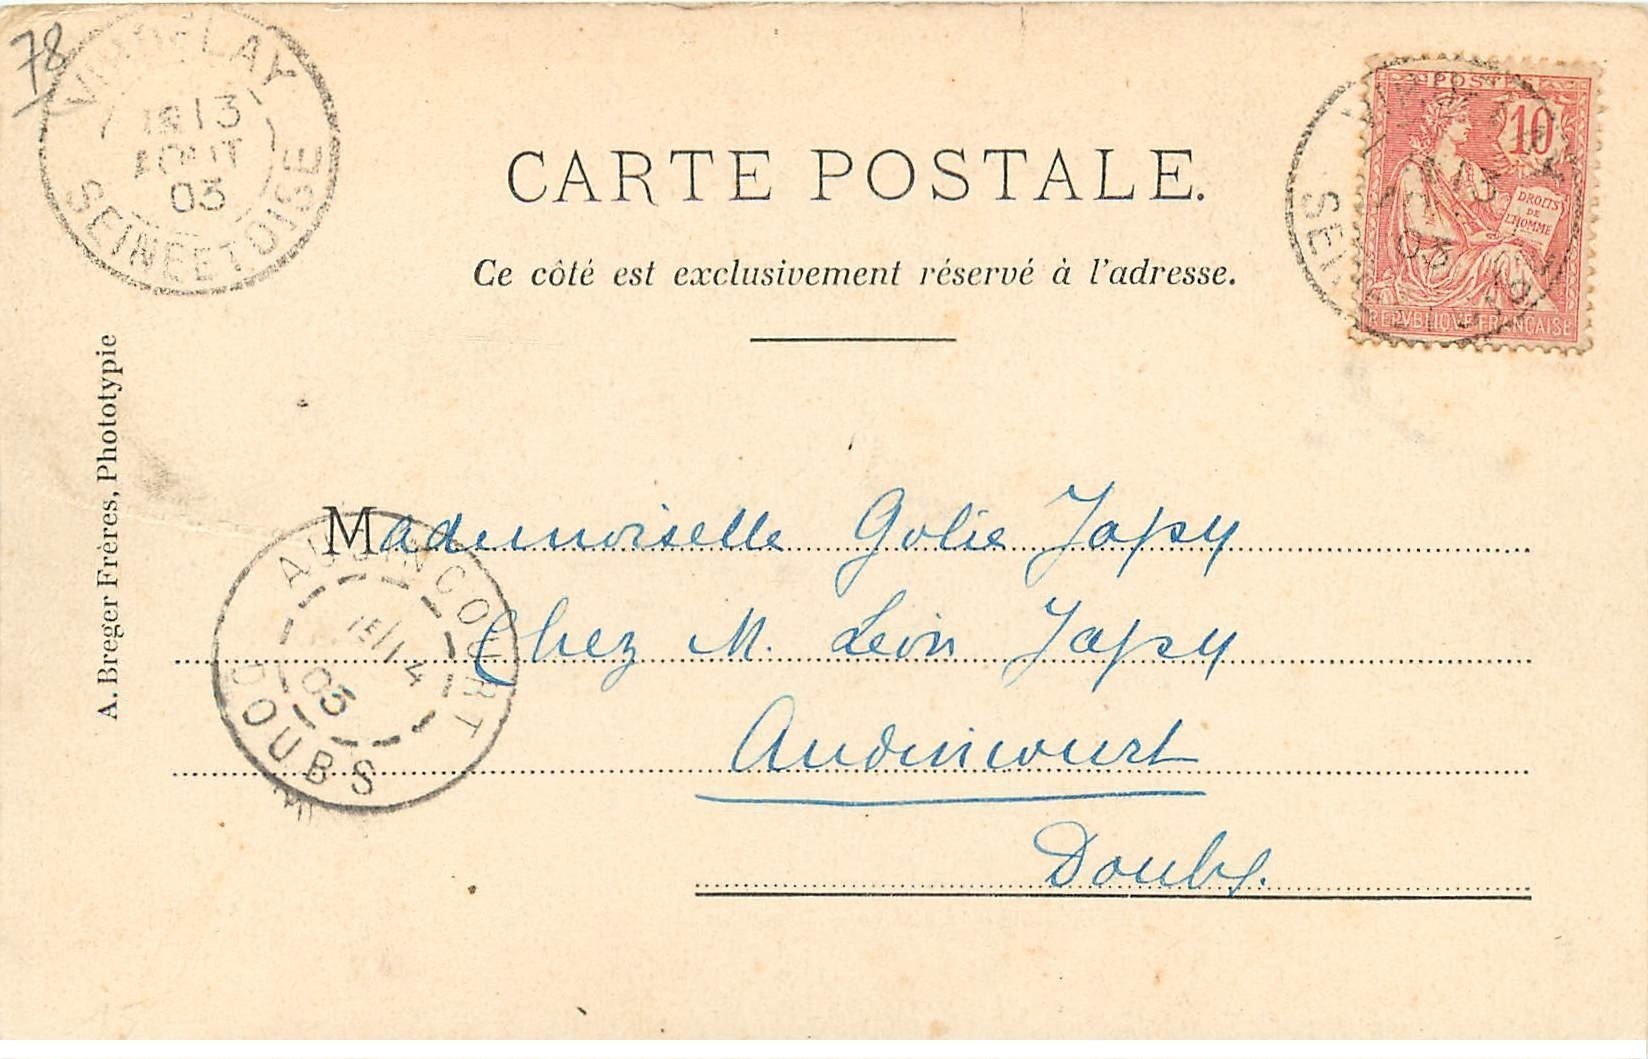 78
VIROFLAY
13
AOUT
03
SEINE ET OISE
POSTES
10
DROITS
DE
L'HOMME
REPVBLIQVE FRANÇAISE
03
CARTE POSTALE.
Ce côté est exclusivement réservé à l'adresse.
A. Breger Frères, Phototypie
Mademoiselle Golie Japy
Chez M. Léon Japy
Audincourt
Doubs.
AUDINCOURT
15/14
03
DOUBS